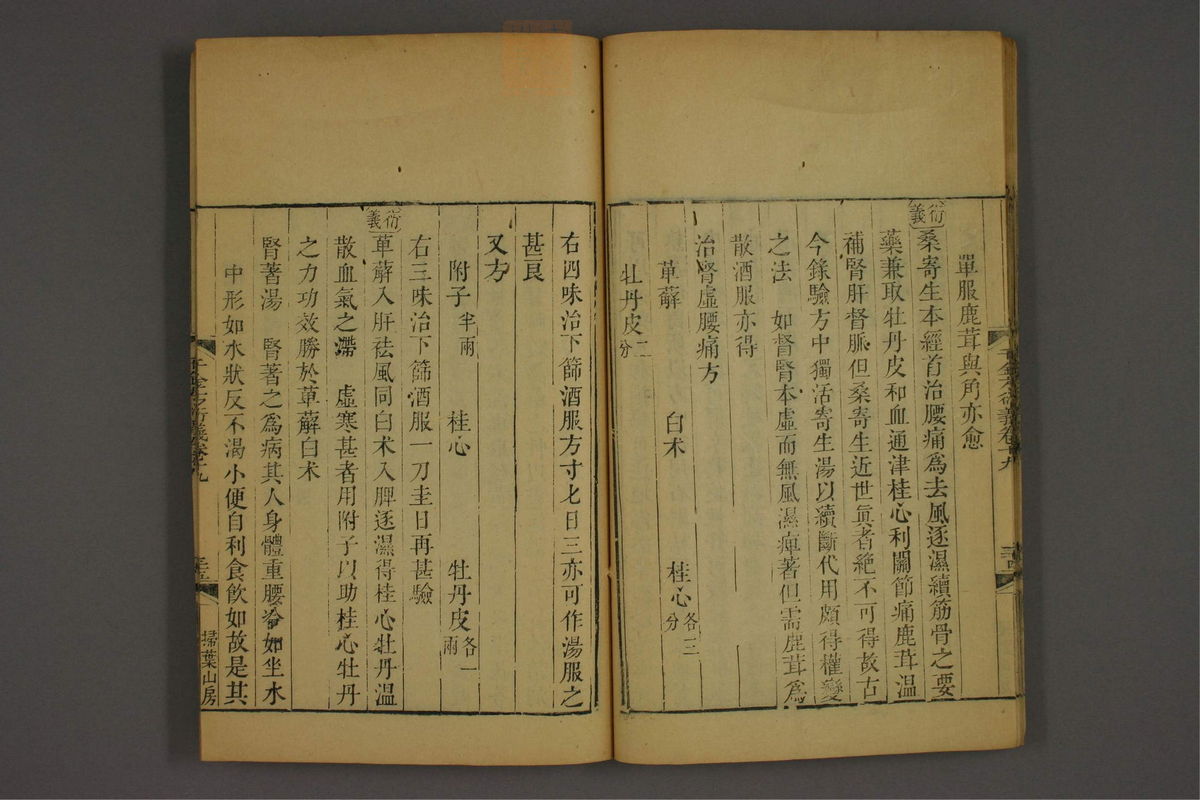 單服鹿茸與角亦愈
衍義 桑寄生本經首治腰痛爲去風逐濕續筋骨之要
藥兼取牡丹皮和血通津桂心利關節痛鹿茸溫
補腎肝督脈但桑寄生近世眞者絶不可得故古
今錄驗方中獨活寄生湯以續斷代用頗得權變
之法 如督腎本虛而無風濕痺著但需鹿茸爲
散酒服亦得
治腎虛腰痛方
萆薢 白术 桂心各三分
牡丹皮二分
右四味治下篩酒服方寸七日三亦可作湯服之
甚良
又方
附子半兩 桂心 牡丹皮各一兩
右三味治下篩酒服一刀圭日再甚驗
衍義 萆薢入肝祛風同白术入脾逐濕得桂心牡丹溫
散血氣之滯 虛寒甚者用附子以助桂心牡丹
之力功效勝於萆薢白术
腎著湯 腎著之爲病其人身體重腰冷如坐水
中形如水狀反不渴小便自利食飲如故是其
千金方衍義卷十九
掃葉山房